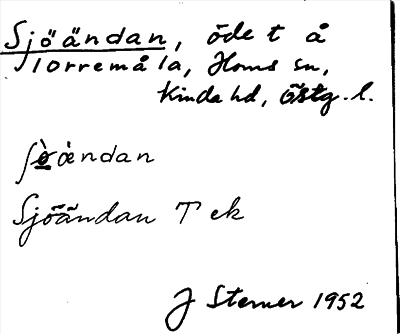 Sjöändan, öde t å
Norremåla, Horns sn,
Kinda hd, Östg. l.
ʃö̀ àndan
Sjöändan T ek
J Sterner 1952